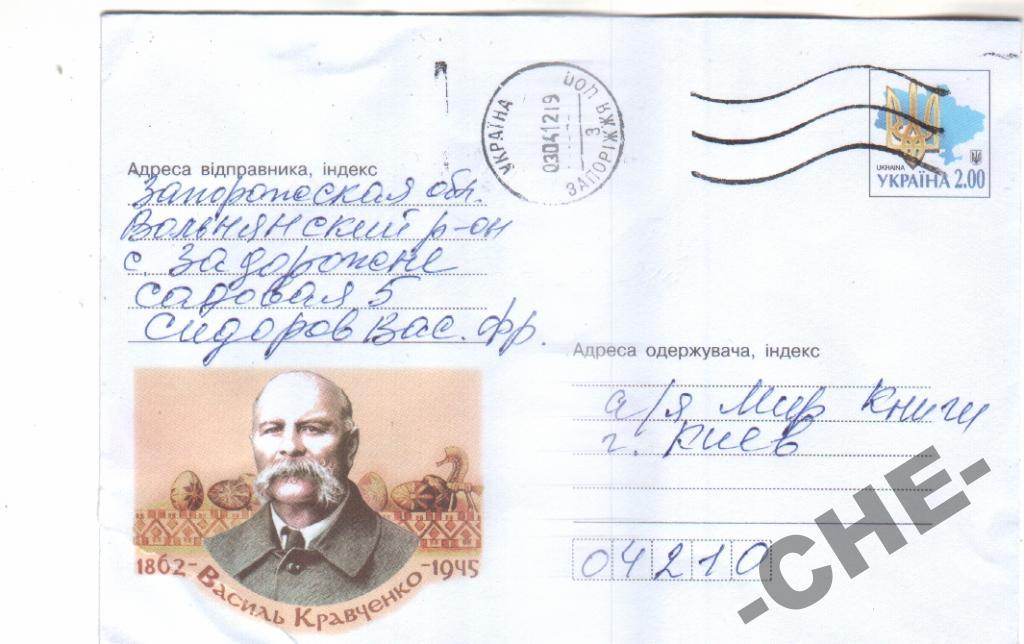 УКРАЇНА
03041219
ЗАПОРІЖЖЯ ЦОП
3
UKRAINA
УКРАЇНА 2.00
Адреса відправника, індекс
Запорожская обл.
Вольнянский р-он
с. Задорожне
садовая 5
Сидоров Вас. Фр.
Адреса одержувача, індекс
а/я Мир книги
г. Киев
04210
1862 - Василь Кравченко - 1945
-CHE-